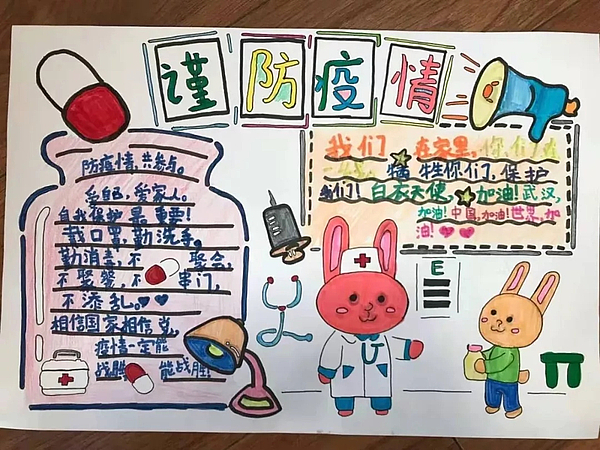 谨防疫情
防疫情,共参与。
爱自己,爱家人。
自我保护最重要!
戴口罩,勤洗手。
勤消毒,不聚会,
不聚餐,不串门,
不添乱。
相信国家相信党,
疫情一定能
战胜 能战胜!
我们 在家里,你们在
牺牲你们,保护
我们!白衣天使,加油!武汉,
加油!中国,加油!世界,加
油!
E